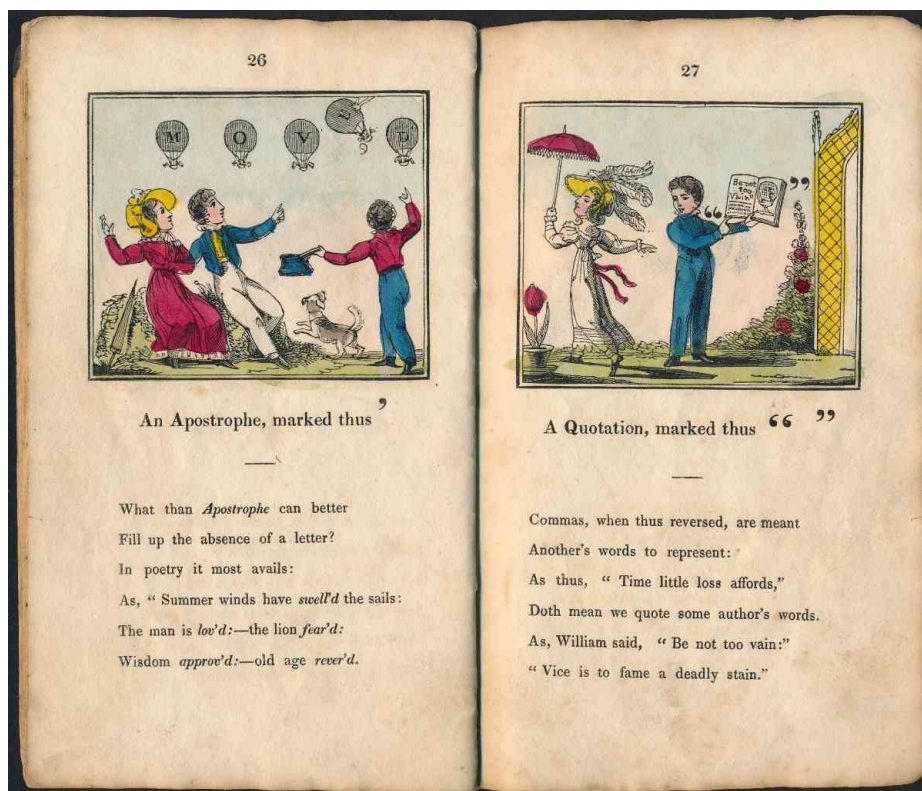 26
M O V E D
An Apostrophe, marked thus ’
What than Apostrophe can better
Fill up the absence of a letter?
In poetry it most avails:
As, “ Summer winds have swell’d the sails:
The man is lov’d:—the lion fear’d:
Wisdom approv’d:—old age rever’d.
27
“ Be not
too
Vain ”
A Quotation, marked thus “ ”
Commas, when thus reversed, are meant
Another’s words to represent:
As thus, “ Time little loss affords,”
Doth mean we quote some author’s words.
As, William said, “ Be not too vain:”
“ Vice is to fame a deadly stain.”